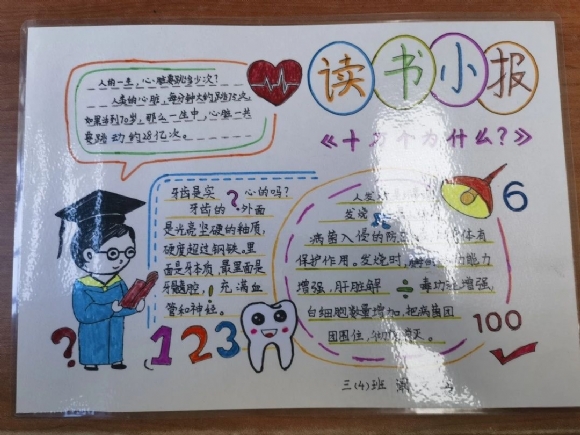 读书小报
《十万个为什么？》
人的一生，心脏要跳多少次？
人类的心脏，每分钟大约跳75次，
如果活到70岁，那么一生中，心脏一共
要跳动约28亿次。
牙齿是实心的吗？
牙齿的外面
是光亮坚硬的釉质，
硬度超过钢铁。里
面是牙本质 最里面是
牙髓腔，充满血
管和神经。
人发
发烧
病菌入侵的防 体有
保护作用。发烧时， 的能力
增强，肝脏解毒功能增强，
白细胞数量增加，把病菌团
团围住，
6
100
? 123
三(4)班